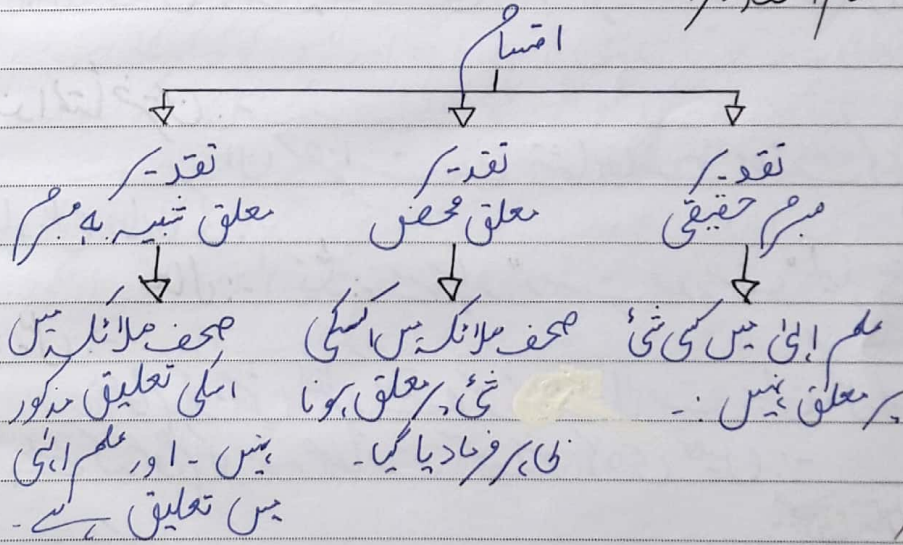 اقسام
تقدیر
مبرم حقیقی
علم الہٰی میں کسی شئ
پر معلق نہیں۔
تقدیر
معلق محض
صحف ملائکہ میں اسکی
شئ پر معلق ہونا
ظاہر فرما دیا گیا۔
تقدیر
معلق شبیہ بہ مبرم
صحف ملائکہ میں
اسکی تعلیق مذکور
نہیں۔ اور علم الہٰی
میں تعلیق ہے۔